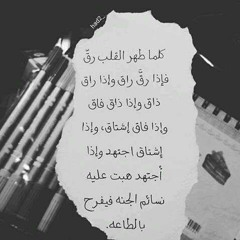 كلما طهر القلب رقّ
فإذا رقَّ راق وإذا راق
ذاق وإذا ذاق فاق
وإذا فاق إشتاق، وإذا
إشتاق اجتهد وإذا
أجتهد هبت عليه
نسائم الجنه فيفرح
بالطاعه.